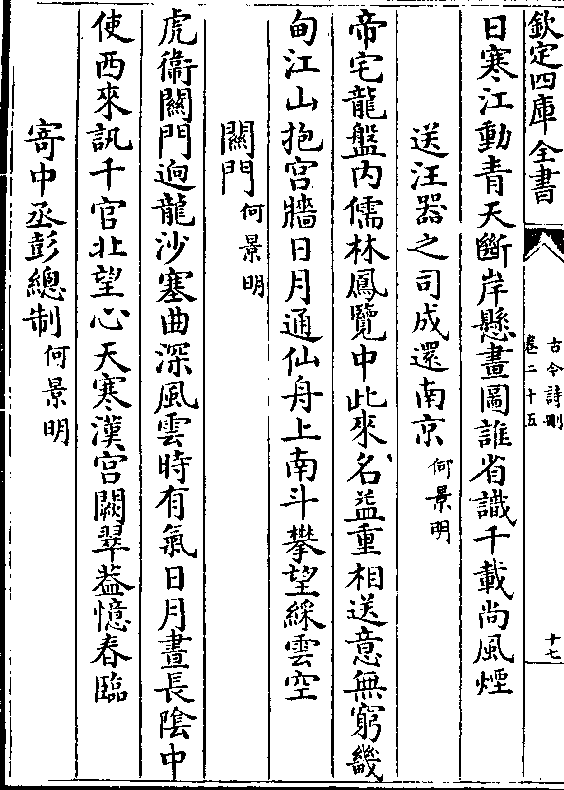 欽定四庫全書
古今詩刪
卷二十五
十七
日寒江動青天斷岸懸畫圖誰省識千載尚風煙
送汪器之司成還南京何景明
帝宅龍盤内儒林鳳覽中此來名益重相送意無窮畿
甸江山抱宫牆日月通仙舟上南斗攀望綵雲空
關門何景明
虎衞關門迥龍沙塞曲深風雲時有氣日月晝長陰中
使西來訊千官北望心天寒漢宫闕翠葢憶春臨
寄中丞彭總制何景明